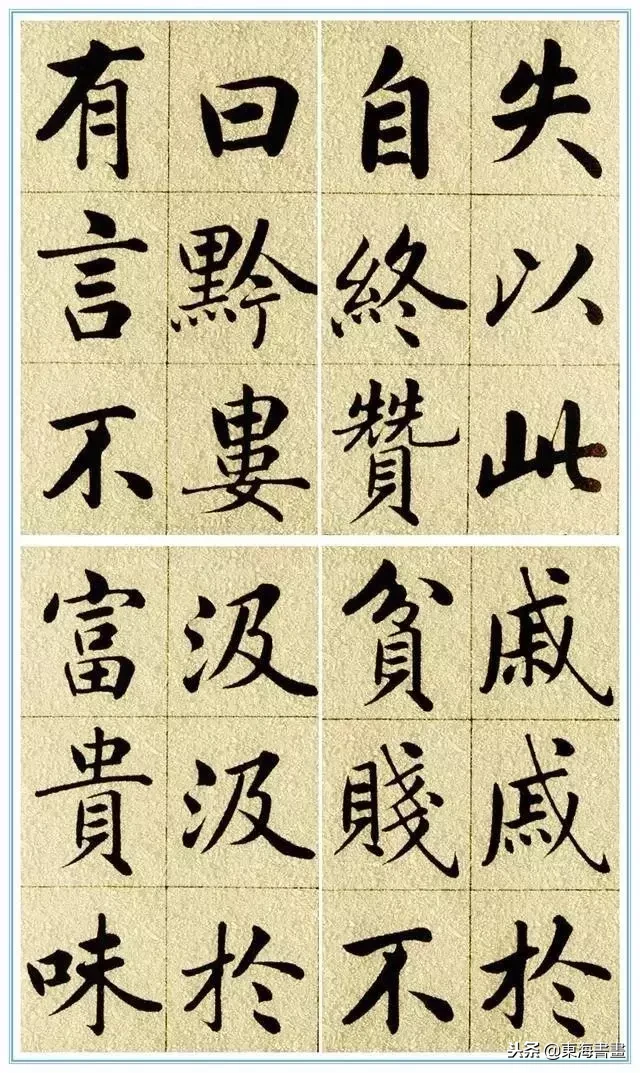 失以此
自終贊
曰黔婁
有言不
戚戚於
貧賤不
汲汲於
富貴味
头条 @東海書畫